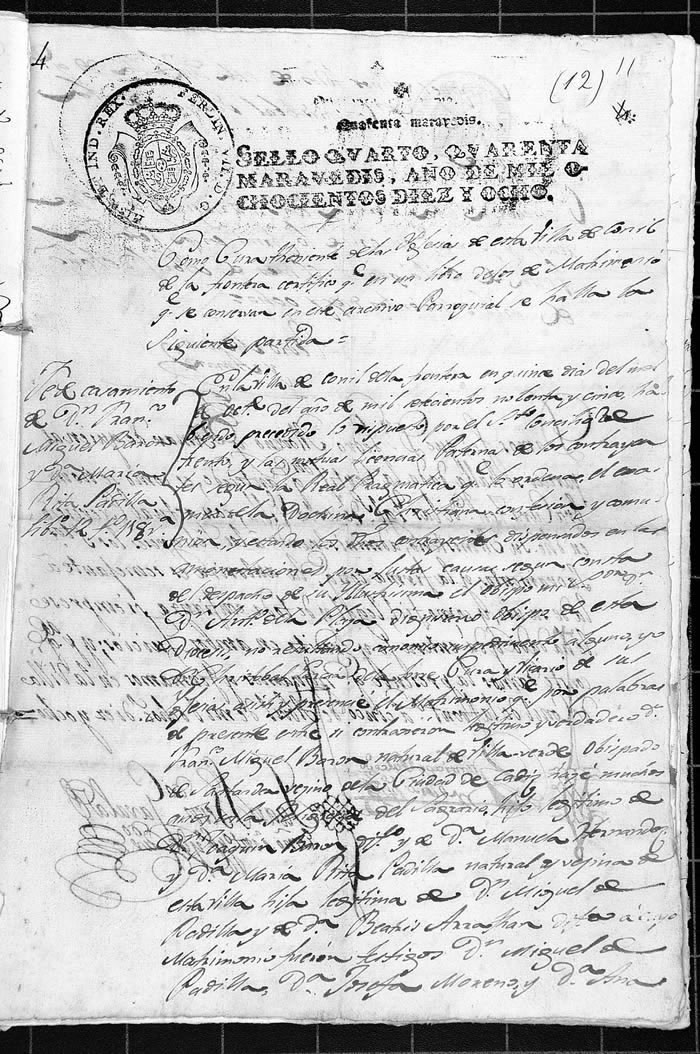 4
(12) 11
HISP. ET IND. REX. FERDIN. VII. D. G.
Quarenta maravedis.
SELLO QVARTO, QVARENTA
MARAVEDIS, AÑO DE MIL O-
CHOCIENTOS DIEZ Y OCHO.
Como Cura theniente de las Yglesias de esta Villa de Conil
de la frontera certifico qe. en un libro de los de Matrimonio
qe. se conservan en este archivo Parroquial se halla la
Siguiente partida =
casamiento
de Dn. Franco.
Miguel Baron
y Da. Maria
Rita Padilla
En la Villa de Conil de la frontera en quince dias del mes
de del año de mil setecientos nobenta y cinco, ha-
viendo precedido lo dispuesto por el Sto. Concilio de
trento, y las mutuas licencias Paternas de los contrayen
tes segun la Real Pragmatica qe. lo ordena, el exa-
men de la Doctrina Christiana, confesion y comu-
nion, y estando los dhos. contrayentes dispensados en las
amonestaciones por justas causas segun consta
del despacho de su Illustrisima el obispo mi Sr.
Dn. Anto. de la Plaza dignisimo Obispo de esta
Diocesi, no resultando canonico impedimento alguno, yo
Cura y Vicario de sus
Yglesias asisti y presencié el Matrimonio qe. por palabras
de presente entre si contrajeron legitimo y verdadero Dn.
Franco. Miguel Baron natural de Villa-verde Obispado
de Santander vezino de la Ciudad de Cadiz haze muchos
del Sagrario, hijo legitimo de
Dn. Joaquin Baron y de Da. Manuela Hernandez
y Da. Maria Rita Padilla natural y vezina de
esta Villa hija legitima de Dn. Miguel de
Padilla y de Da. Beatris a cuyo
Matrimonio fueron testigos Dn. Miguel de
Padilla, Da. Josefa Moreno, y Da. Ana